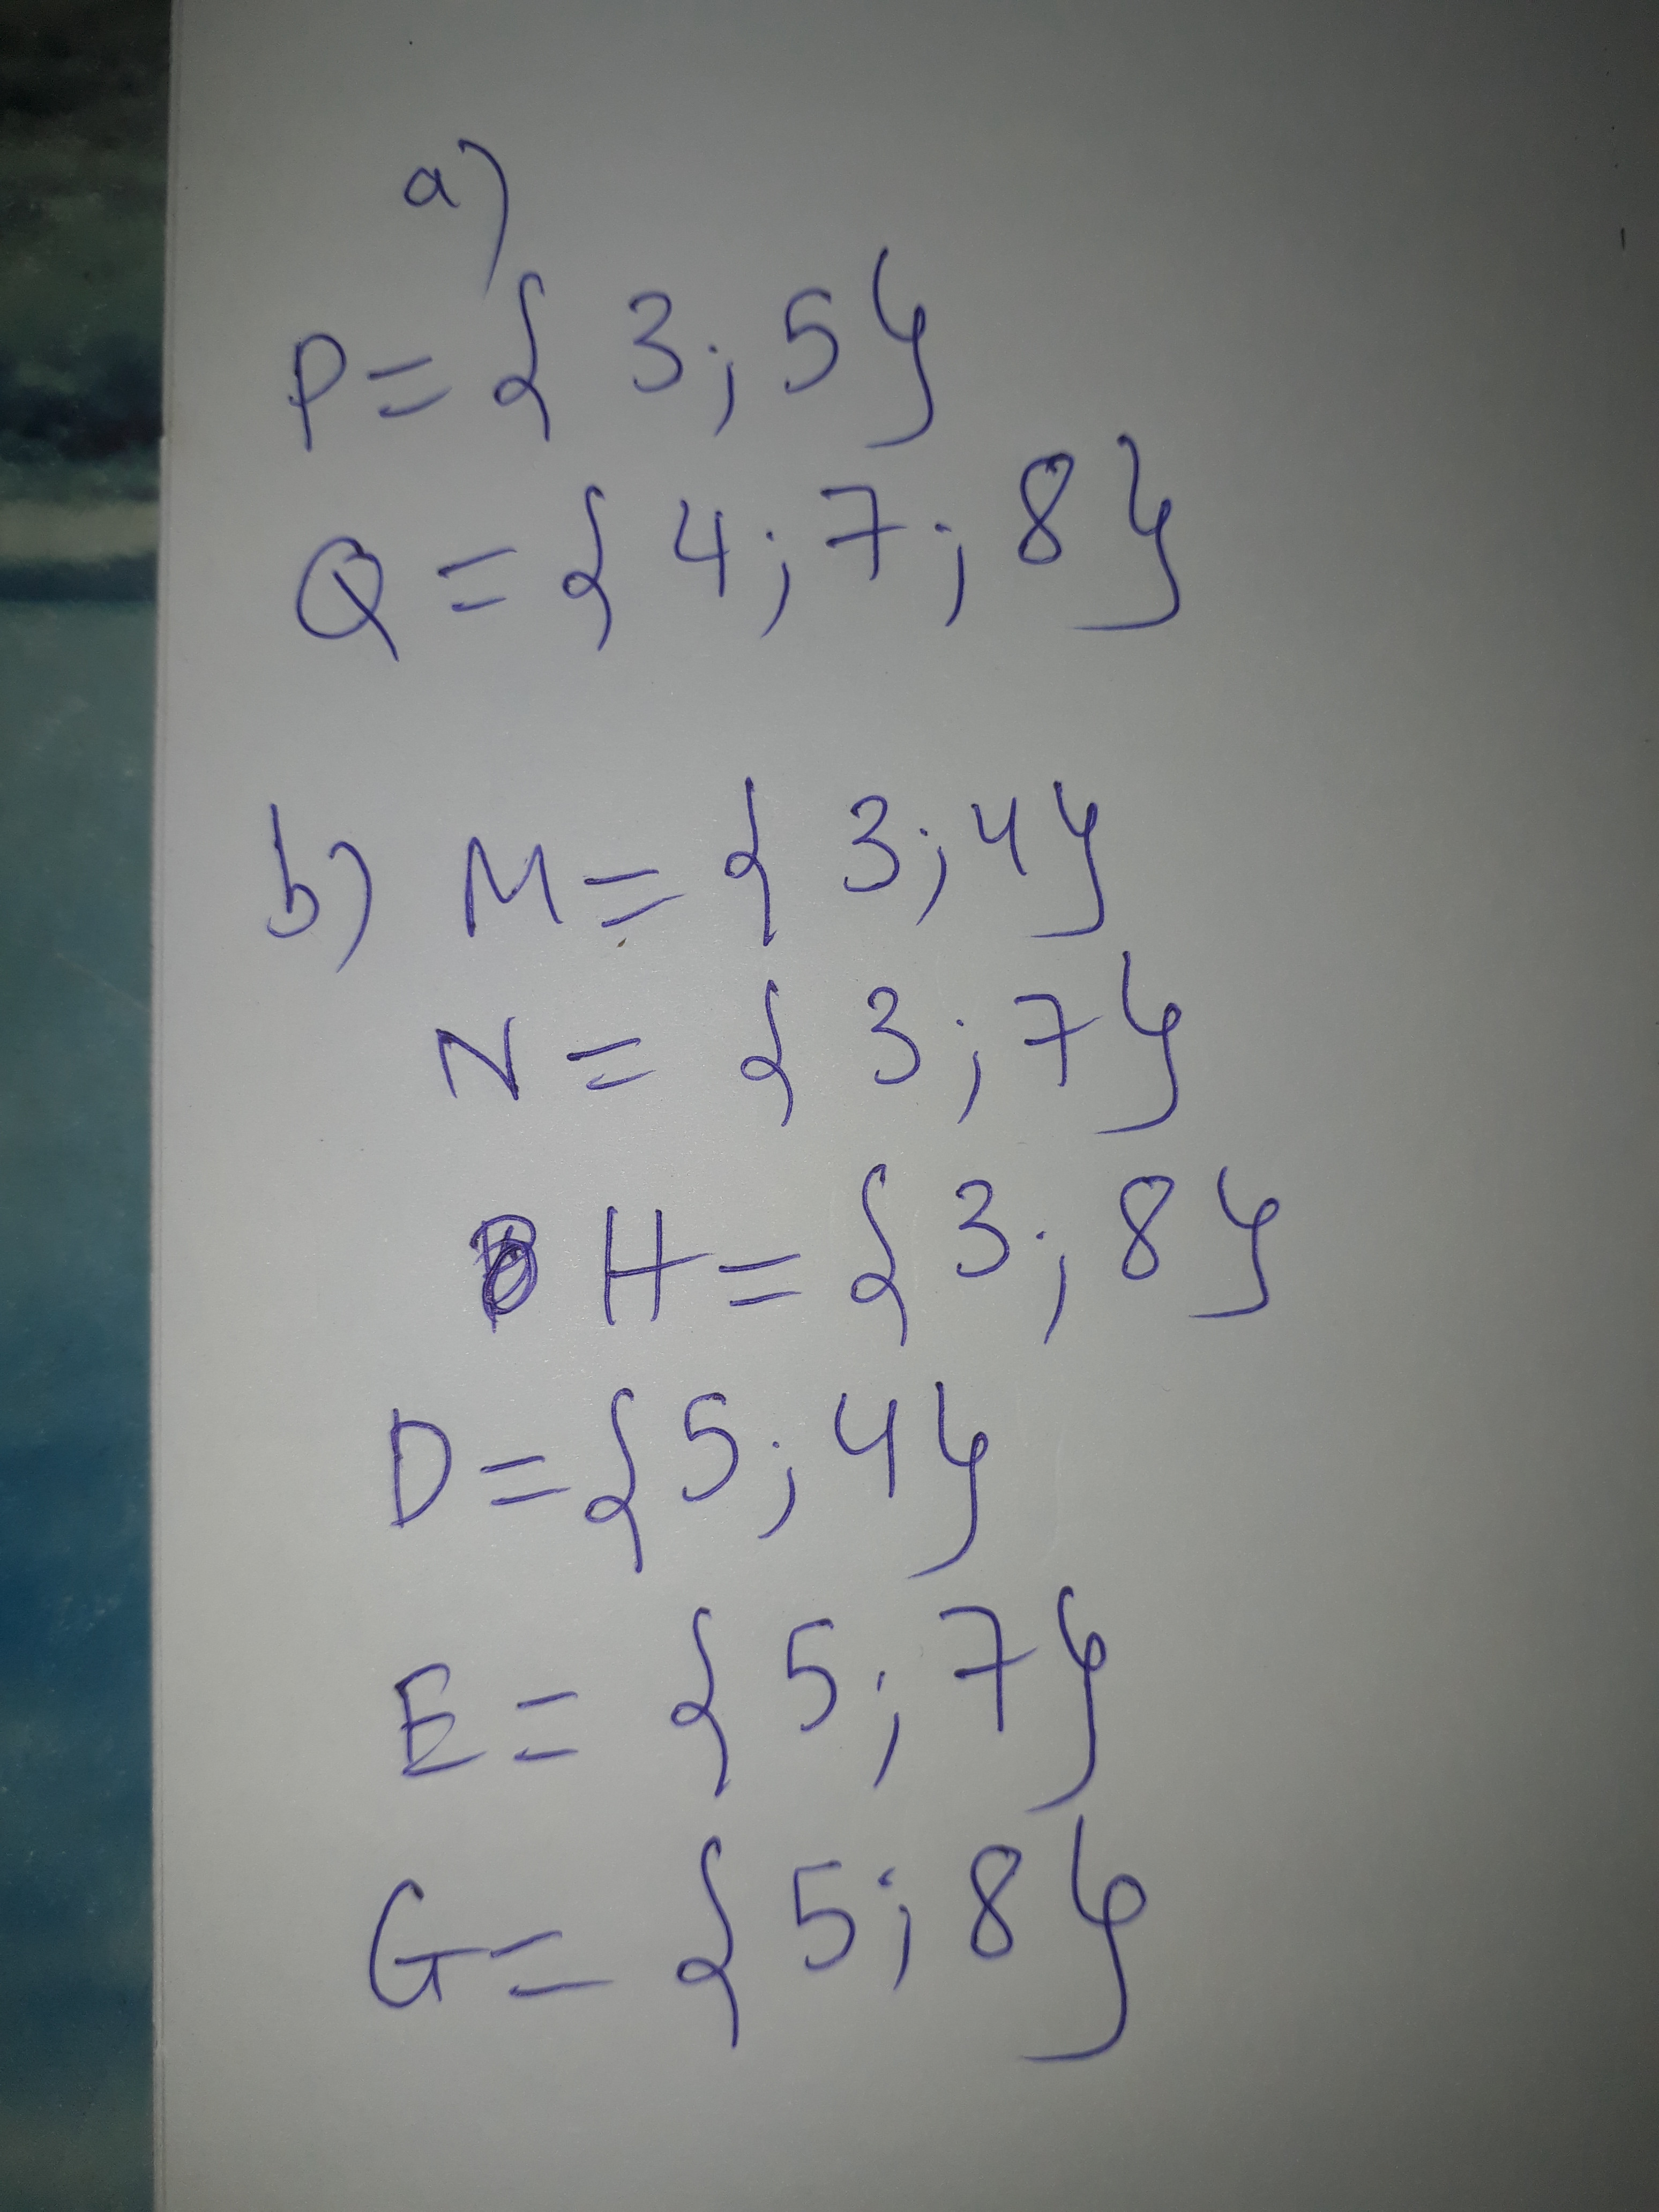 a)
P = { 3 ; 5 }
Q = { 4 ; 7 ; 8 }
b) M = { 3 ; 4 }
N = { 3 ; 7 }
H = { 3 ; 8 }
D = { 5 ; 4 }
E = { 5 ; 7 }
G = { 5 ; 8 }